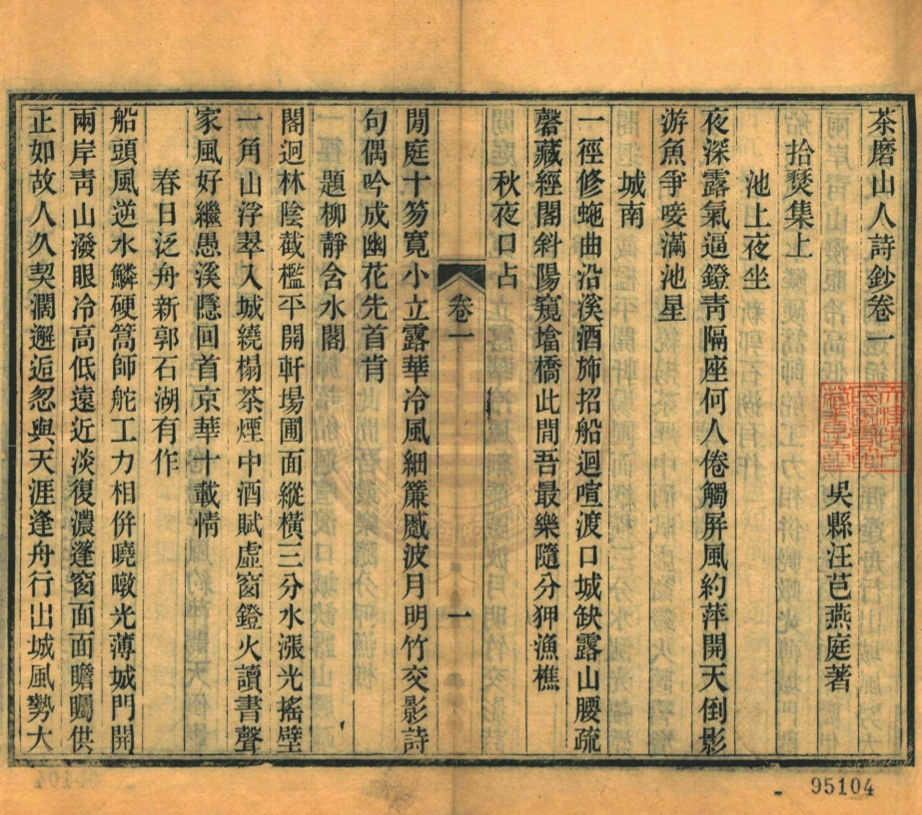 茶磨山人詩鈔卷一
吳縣汪芑燕庭著
拾燹集上
池上夜坐
夜深露氣逼鐙靑隔座何人倦觸屏風約萍開天倒影
游魚爭唼滿池星
城南
一徑修蛇曲沿溪酒斾招船迴喧渡口城缺露山腰疏
磬藏經閣斜陽窺墖橋此閒吾最樂隨分狎漁樵
秋夜口占
卷一
一
閒庭十笏寬小立露華冷風細簾慼波月明竹交影詩
句偶吟成幽花先首肯
題柳靜含水閣
閣迴林陰截檻平開軒場圃面縱橫三分水漲光搖壁
一角山浮翠入城繞榻茶煙中酒賦虛窗鐙火讀書聲
家風好繼愚溪隱回首京華十載情
春日泛舟新郭石湖有作
船頭風逆水鱗硬篙師舵工力相併曉暾光薄城門開
兩岸靑山潑眼冷高低遠近淡復濃篷窗面面瞻矚供
正如故人久契濶邂逅忽與天涯逢舟行出城風勢大
95104